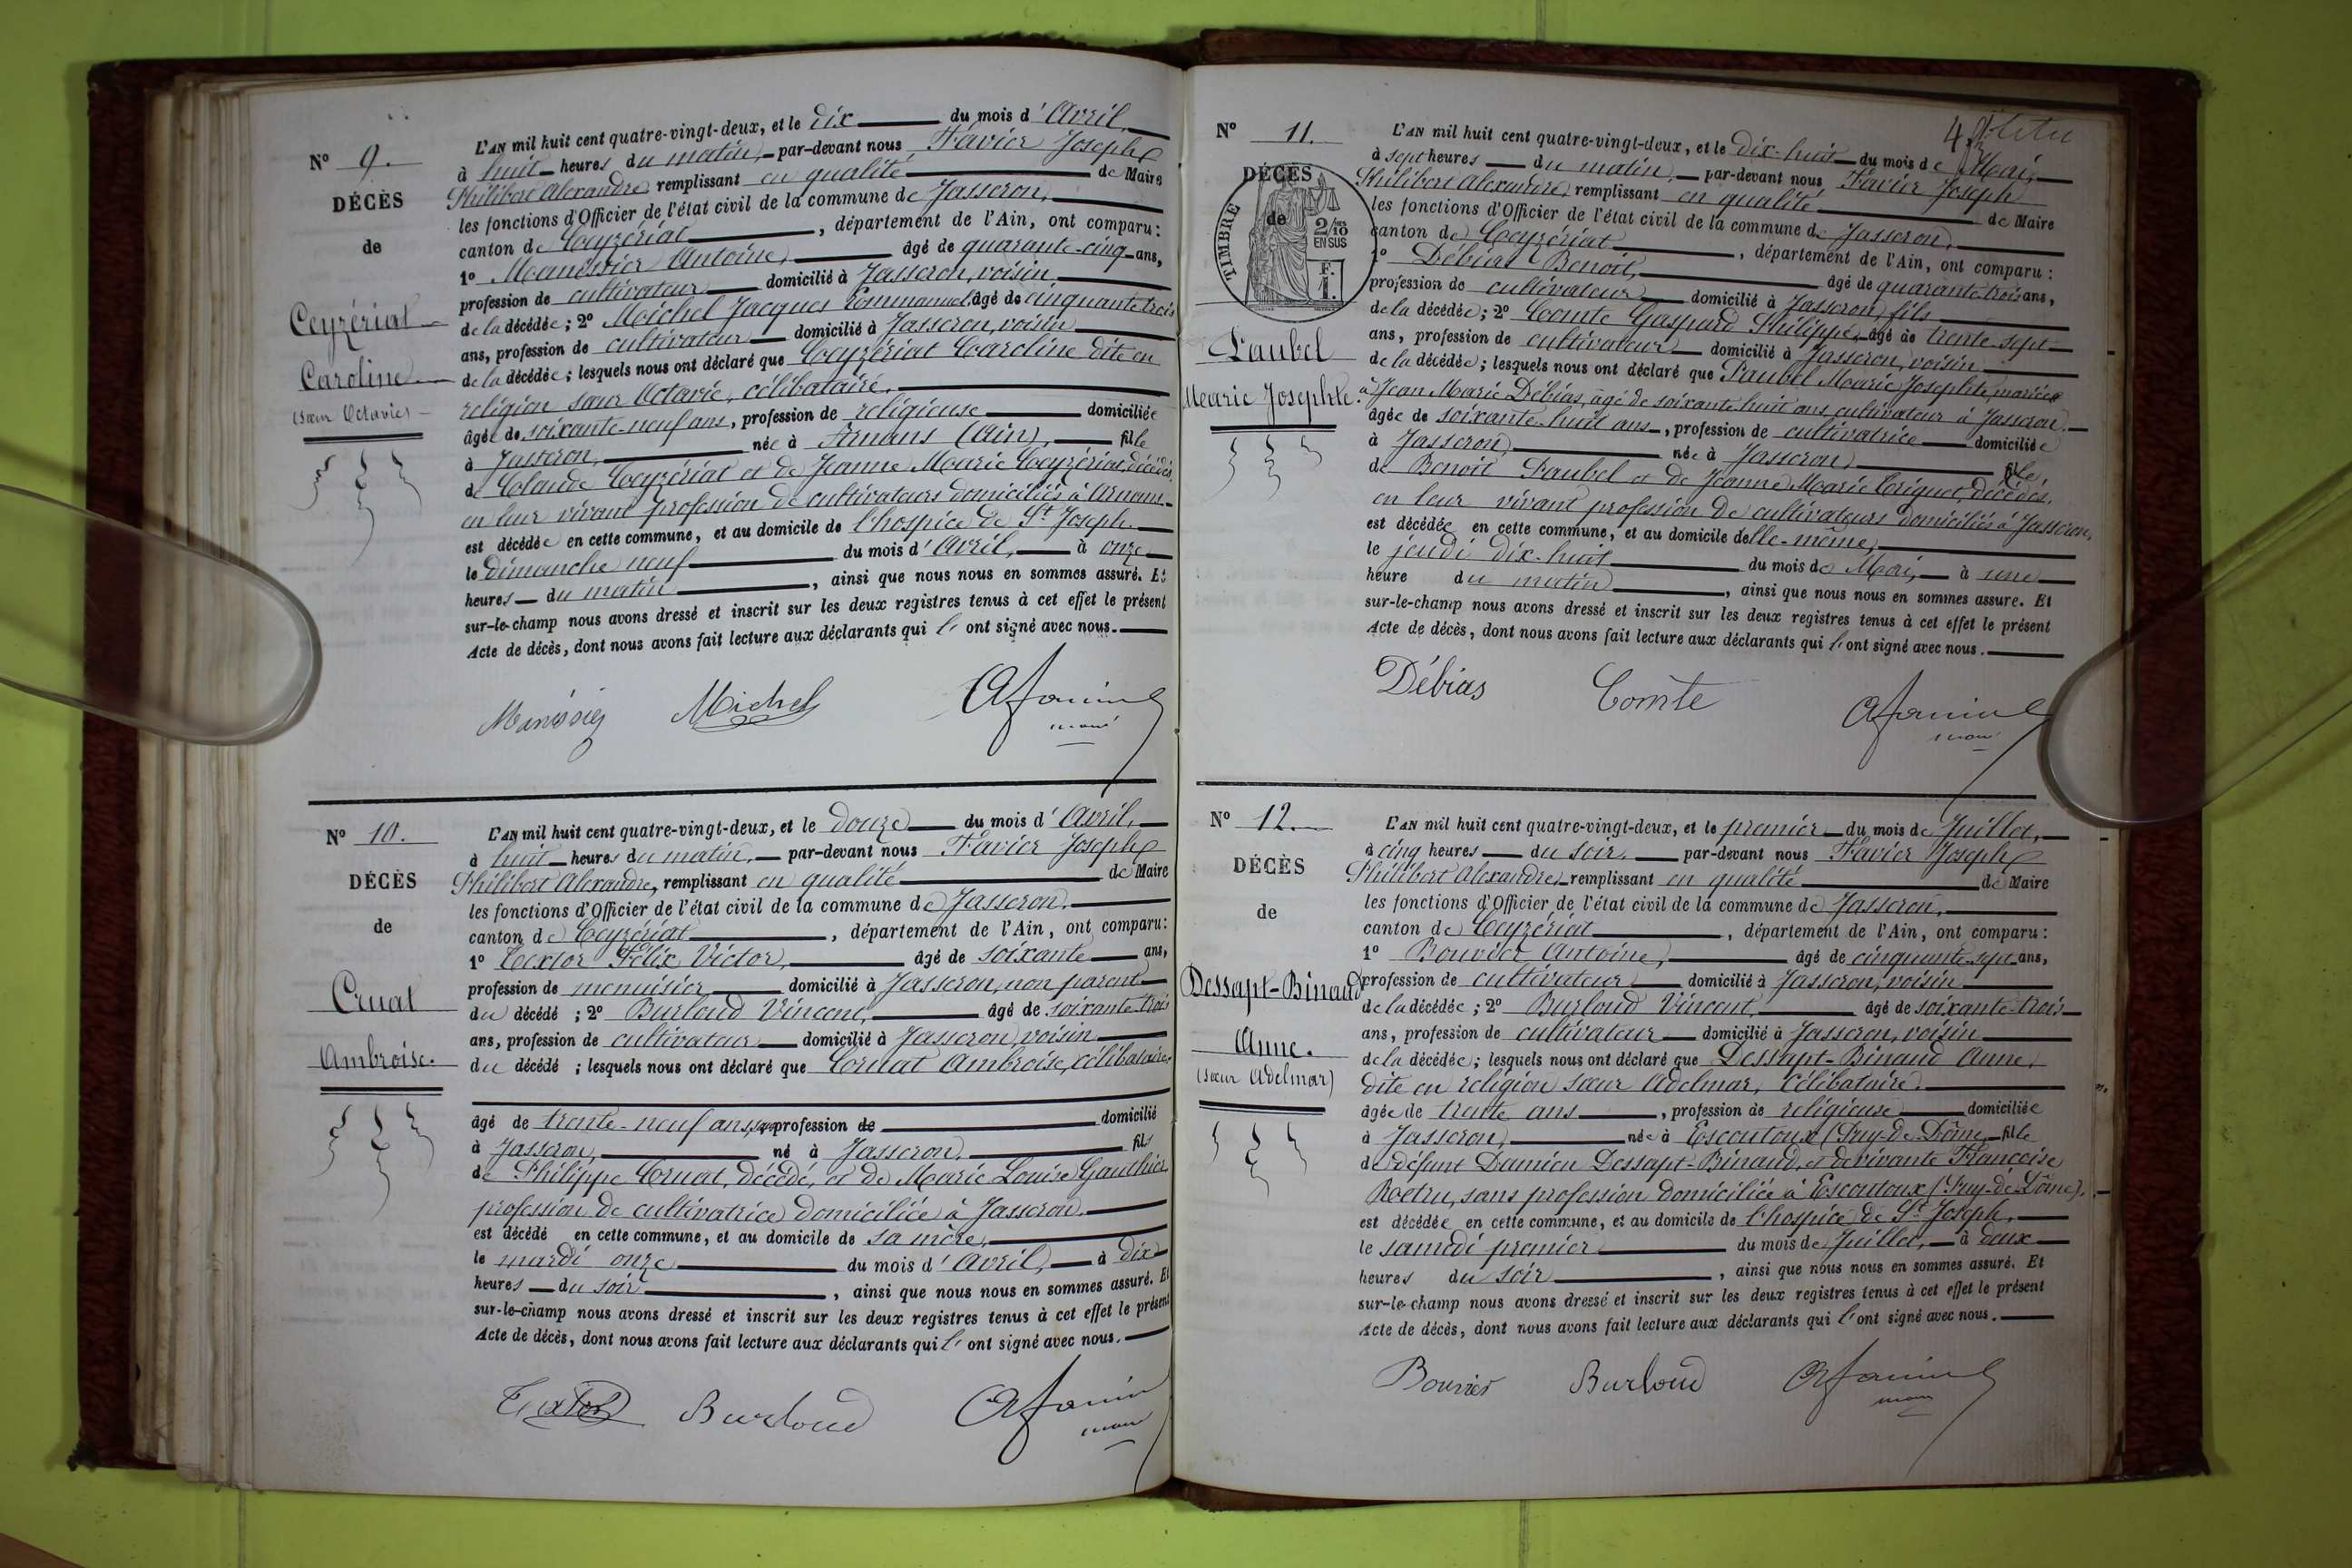 N° 9.
DÉCÈS
de
Ceyzériat
Caroline
(sœur Octavie)
L'AN mil huit cent quatre-vingt-deux, et le dix du mois d'Avril,
à huit heures du matin, par-devant nous Favier Joseph
Philibert Alexandre, remplissant en qualité de Maire
les fonctions d'Officier de l'état civil de la commune de Jasseron,
canton de Ceyzériat, département de l'Ain, ont comparu :
1° Manéssier Antoine, âgé de quarante-cinq ans,
profession de cultivateur domicilié à Jasseron, voisin
de la décédée ; 2° Michel Jacques Emmanuel, âgé de cinquante trois
ans, profession de cultivateur domicilié à Jasseron, voisin
de la décédée ; lesquels nous ont déclaré que Ceyzériat Caroline dite en
religion sœur Octavie, célibataire,
âgée de soixante-neuf ans, profession de religieuse domiciliée
à Jasseron, née à Arnans (Ain), fille
de Claude Ceyzériat et de Jeanne Marie Ceyzériat, décédés,
en leur vivant profession de cultivateurs domiciliés à Arnans
est décédée en cette commune, et au domicile de l'hospice de St Joseph
le dimanche neuf du mois d'Avril, à onze
heures du matin, ainsi que nous nous en sommes assuré. Et
sur-le-champ nous avons dressé et inscrit sur les deux registres tenus à cet effet le présent
Acte de décès, dont nous avons fait lecture aux déclarants qui l'ont signé avec nous.
Michel
N° 10.
DÉCÈS
de
Cruat
Ambroise.
L'AN mil huit cent quatre-vingt-deux, et le douze du mois d'Avril,
à huit heures du matin, par-devant nous Favier Joseph
Philibert Alexandre, remplissant en qualité de Maire
les fonctions d'Officier de l'état civil de la commune de Jasseron.
canton de Ceyzériat, département de l'Ain, ont comparu :
1° Textor Félix Victor, âgé de soixante ans,
profession de menuisier domicilié à Jasseron, non parent
du décédé ; 2° Burloud Vincent, âgé de soixante-trois
ans, profession de cultivateur domicilié à Jasseron, voisin
du décédé ; lesquels nous ont déclaré que Cruat Ambroise, célibataire,
âgé de trente-neuf ans, profession de domicilié
à Jasseron, né à Jasseron, fils
de Philippe Cruat, décédé, et de Marie Louise Gauthier
profession de cultivatrice domiciliée à Jasseron.
est décédé en cette commune, et au domicile de sa mère,
le mardi onze du mois d'Avril, à dix
heures du soir, ainsi que nous nous en sommes assuré. Et
sur-le-champ nous avons dressé et inscrit sur les deux registres tenus à cet effet le présent
Acte de décès, dont nous avons fait lecture aux déclarants qui l'ont signé avec nous.
Textor Burloud
N° 11.
DÉCÈS
de
TIMBRE
2/10 EN SUS
F. 1.
Paubel
Marie Josephte.
L'AN mil huit cent quatre-vingt-deux, et le dix-huit du mois de Mai,
à sept heures du matin, par-devant nous Favier Joseph
Philibert Alexandre, remplissant en qualité de Maire
les fonctions d'Officier de l'état civil de la commune de Jasseron,
canton de Ceyzériat, département de l'Ain, ont comparu :
1° Débias Benoit, âgé de quarante-trois ans,
profession de cultivateur domicilié à Jasseron, fils
de la décédée ; 2° Comte Gaspard Philippe, âgé de trente-sept
ans, profession de cultivateur domicilié à Jasseron, voisin
de la décédée ; lesquels nous ont déclaré que Paubel Marie Josephte, mariée
à Jean Marie Débias, âgé de soixante huit ans, cultivateur à Jasseron.
âgée de soixante-huit ans, profession de cultivatrice domiciliée
à Jasseron, née à Jasseron, fille
de Benoit Paubel et de Jeanne Marie décédés,
en leur vivant profession de cultivateurs domiciliés à Jasseron,
est décédée en cette commune, et au domicile d'elle-même,
le jeudi dix-huit du mois de Mai, à une
heure du matin, ainsi que nous nous en sommes assuré. Et
sur-le-champ nous avons dressé et inscrit sur les deux registres tenus à cet effet le présent
Acte de décès, dont nous avons fait lecture aux déclarants qui l'ont signé avec nous.
Débias Comte
N° 12.
DÉCÈS
de
Dessapt-Binaud
Anne.
(sœur Adelmar)
L'AN mil huit cent quatre-vingt-deux, et le premier du mois de Juillet,
à cinq heures du soir, par-devant nous Favier Joseph
Philibert Alexandre, remplissant en qualité de Maire
les fonctions d'Officier de l'état civil de la commune de Jasseron,
canton de Ceyzériat, département de l'Ain, ont comparu :
1° Bouvier Antoine, âgé de cinquante-sept ans,
profession de cultivateur domicilié à Jasseron, voisin
de la décédée ; 2° Burloud Vincent, âgé de soixante-trois
ans, profession de cultivateur domicilié à Jasseron, voisin
de la décédée ; lesquels nous ont déclaré que Dessapt-Binaud Anne,
dite en religion sœur Adelmar, célibataire.
âgée de trente ans, profession de religieuse domiciliée
à Jasseron, née à Escoutoux (Puy-de-Dôme) fille
de défunt Damien Dessapt-Binaud, et de vivante Françoise
sans profession domiciliée à Escoutoux (Puy-de-Dôme).
est décédée en cette commune, et au domicile de l'hospice de St Joseph,
le samedi premier du mois de Juillet, à deux
heures du soir, ainsi que nous nous en sommes assuré. Et
sur-le-champ nous avons dressé et inscrit sur les deux registres tenus à cet effet le présent
Acte de décès, dont nous avons fait lecture aux déclarants qui l'ont signé avec nous.
Bouvier Burloud